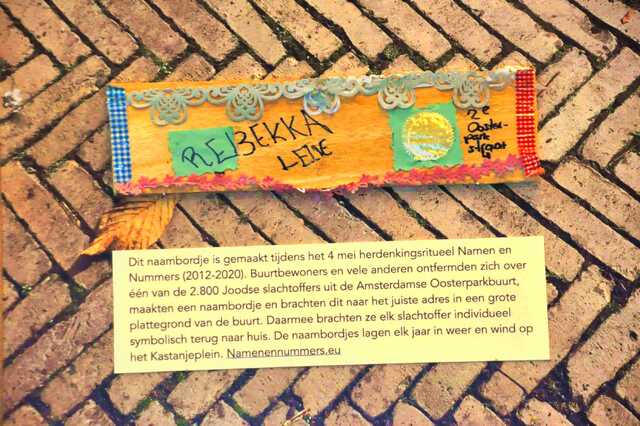 REBEKKA
LEIDE
2e
Ooster-
park
straat
4
Dit naambordje is gemaakt tijdens het 4 mei herdenkingsritueel Namen en
Nummers (2012-2020). Buurtbewoners en vele anderen ontfermden zich over
één van de 2.800 Joodse slachtoffers uit de Amsterdamse Oosterparkbuurt,
maakten een naambordje en brachten dit naar het juiste adres in een grote
plattegrond van de buurt. Daarmee brachten ze elk slachtoffer individueel
symbolisch terug naar huis. De naambordjes lagen elk jaar in weer en wind op
het Kastanjeplein. Namenennummers.eu